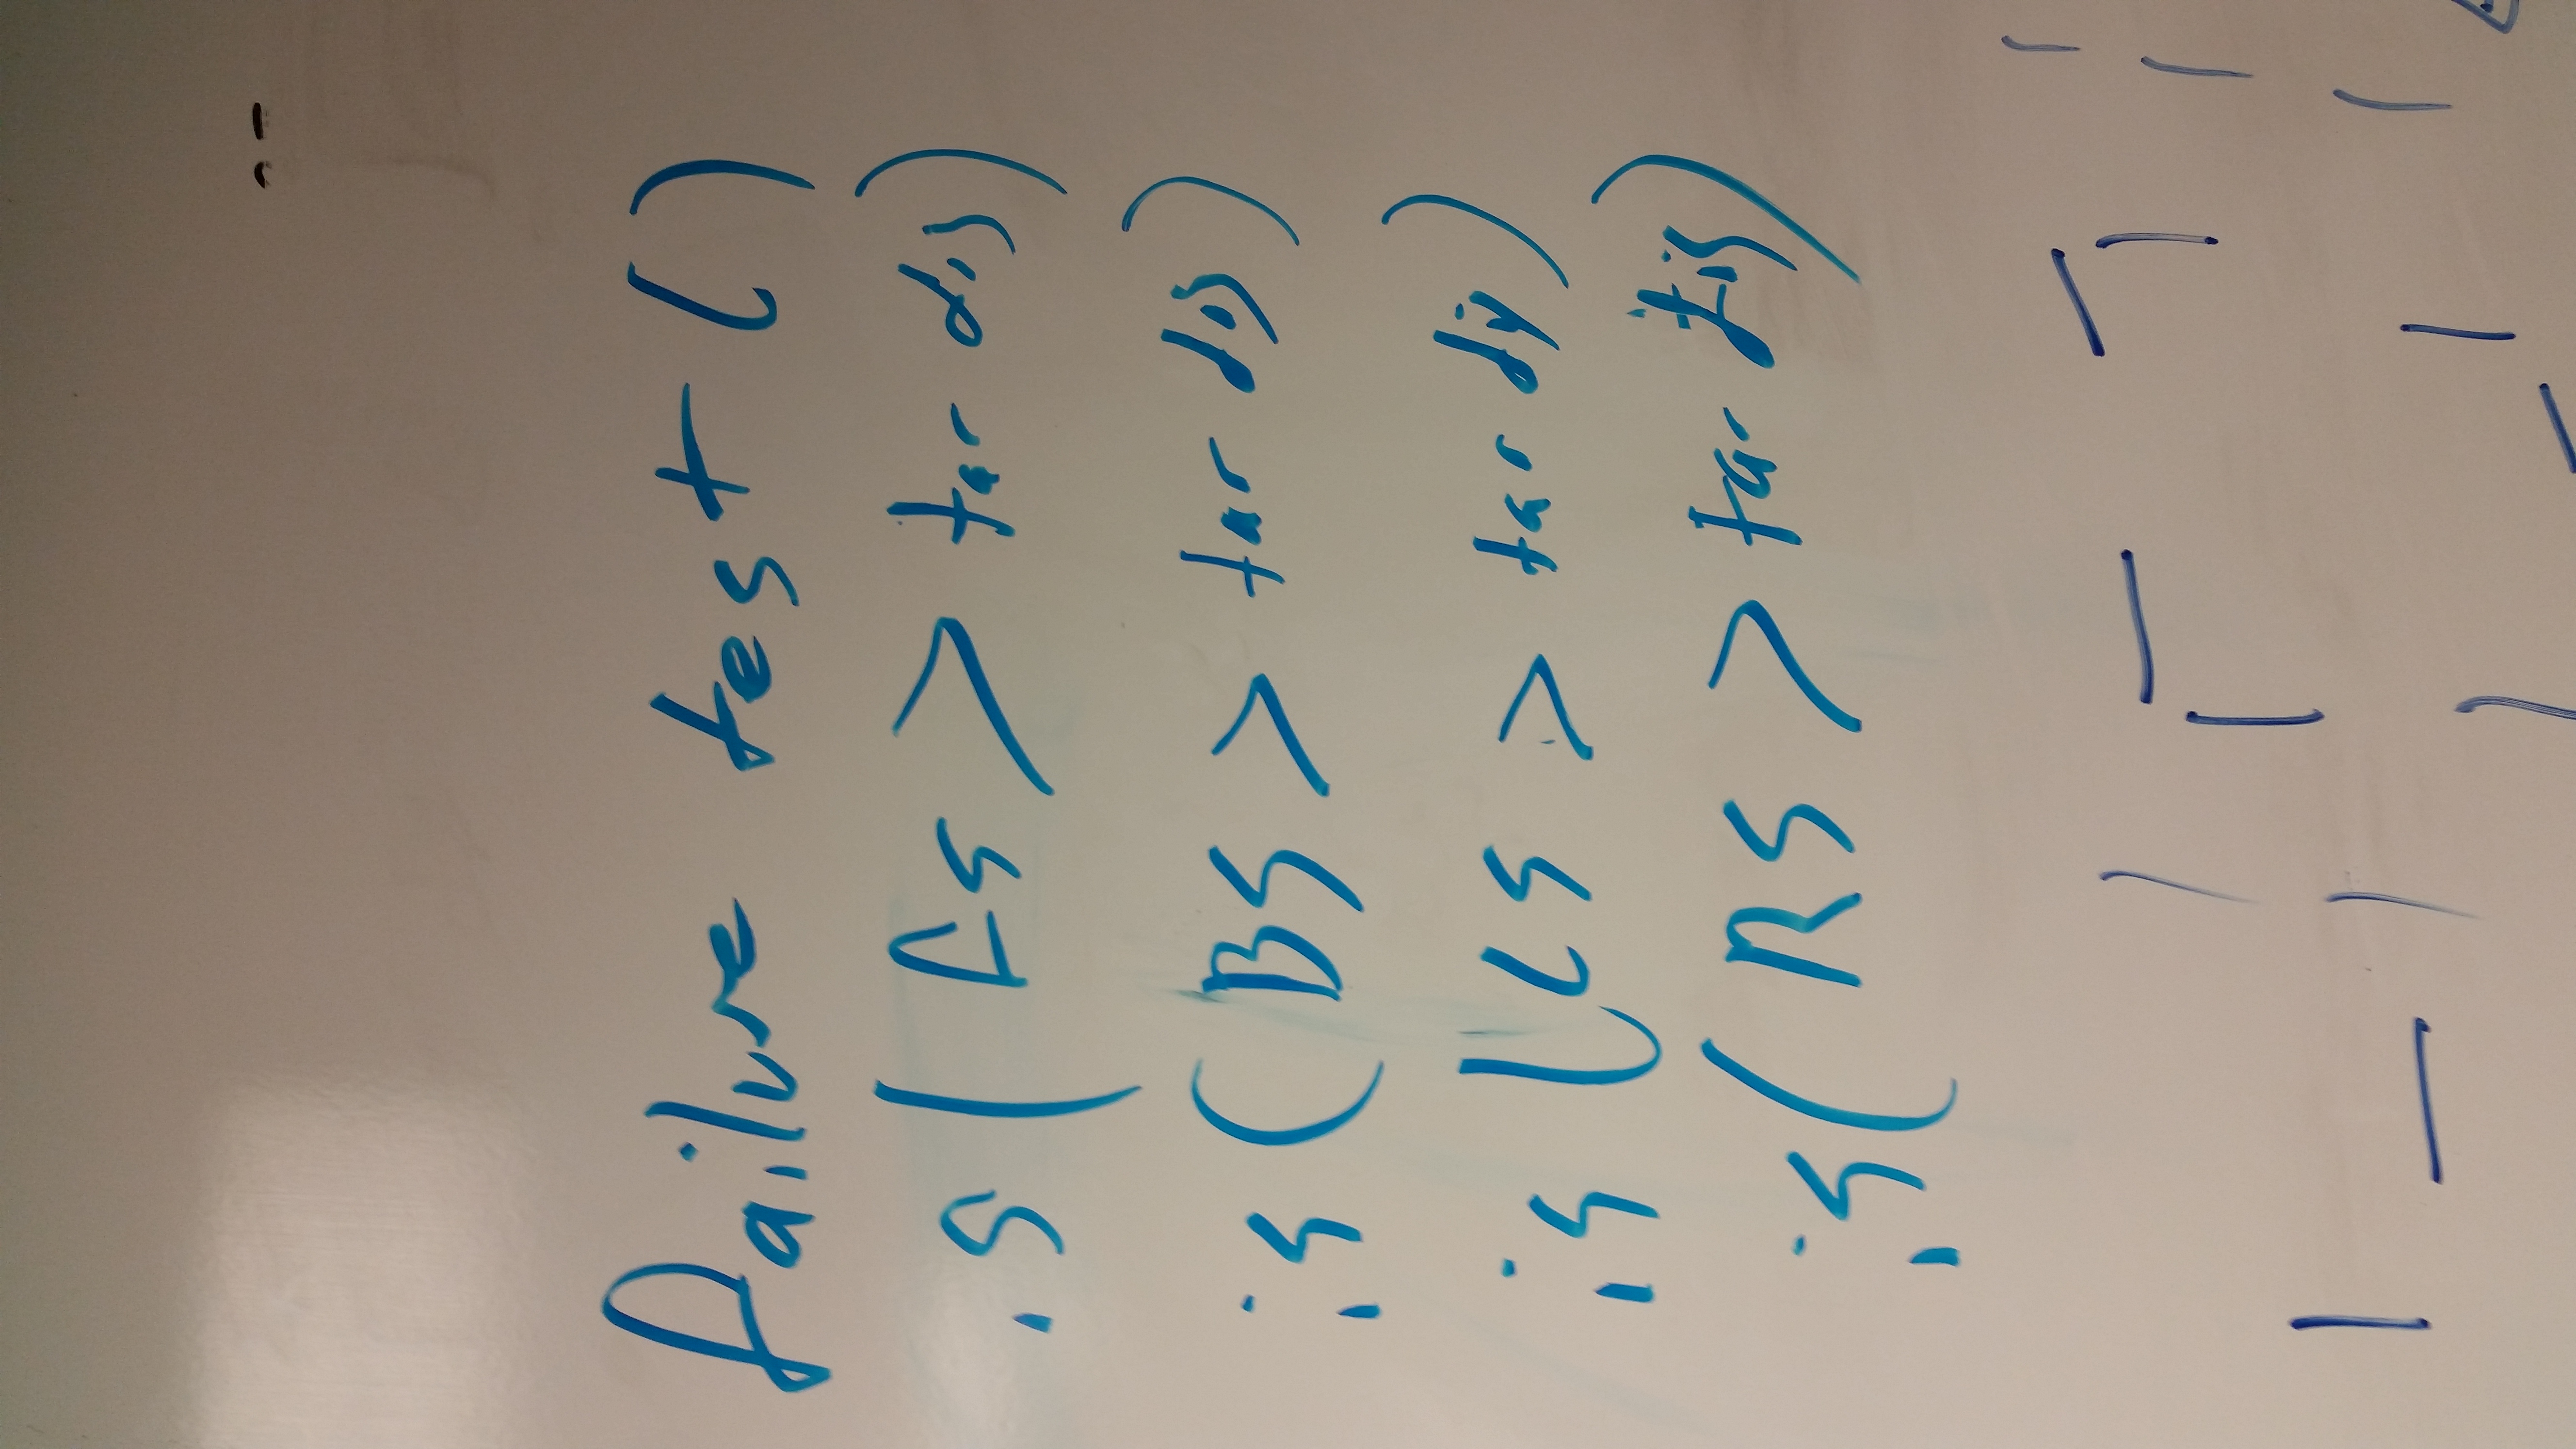 failure test ()
is( Fs > tar dis)
is( BS > tar dis)
is( LS > tar dis)
is( RS > tar dis)